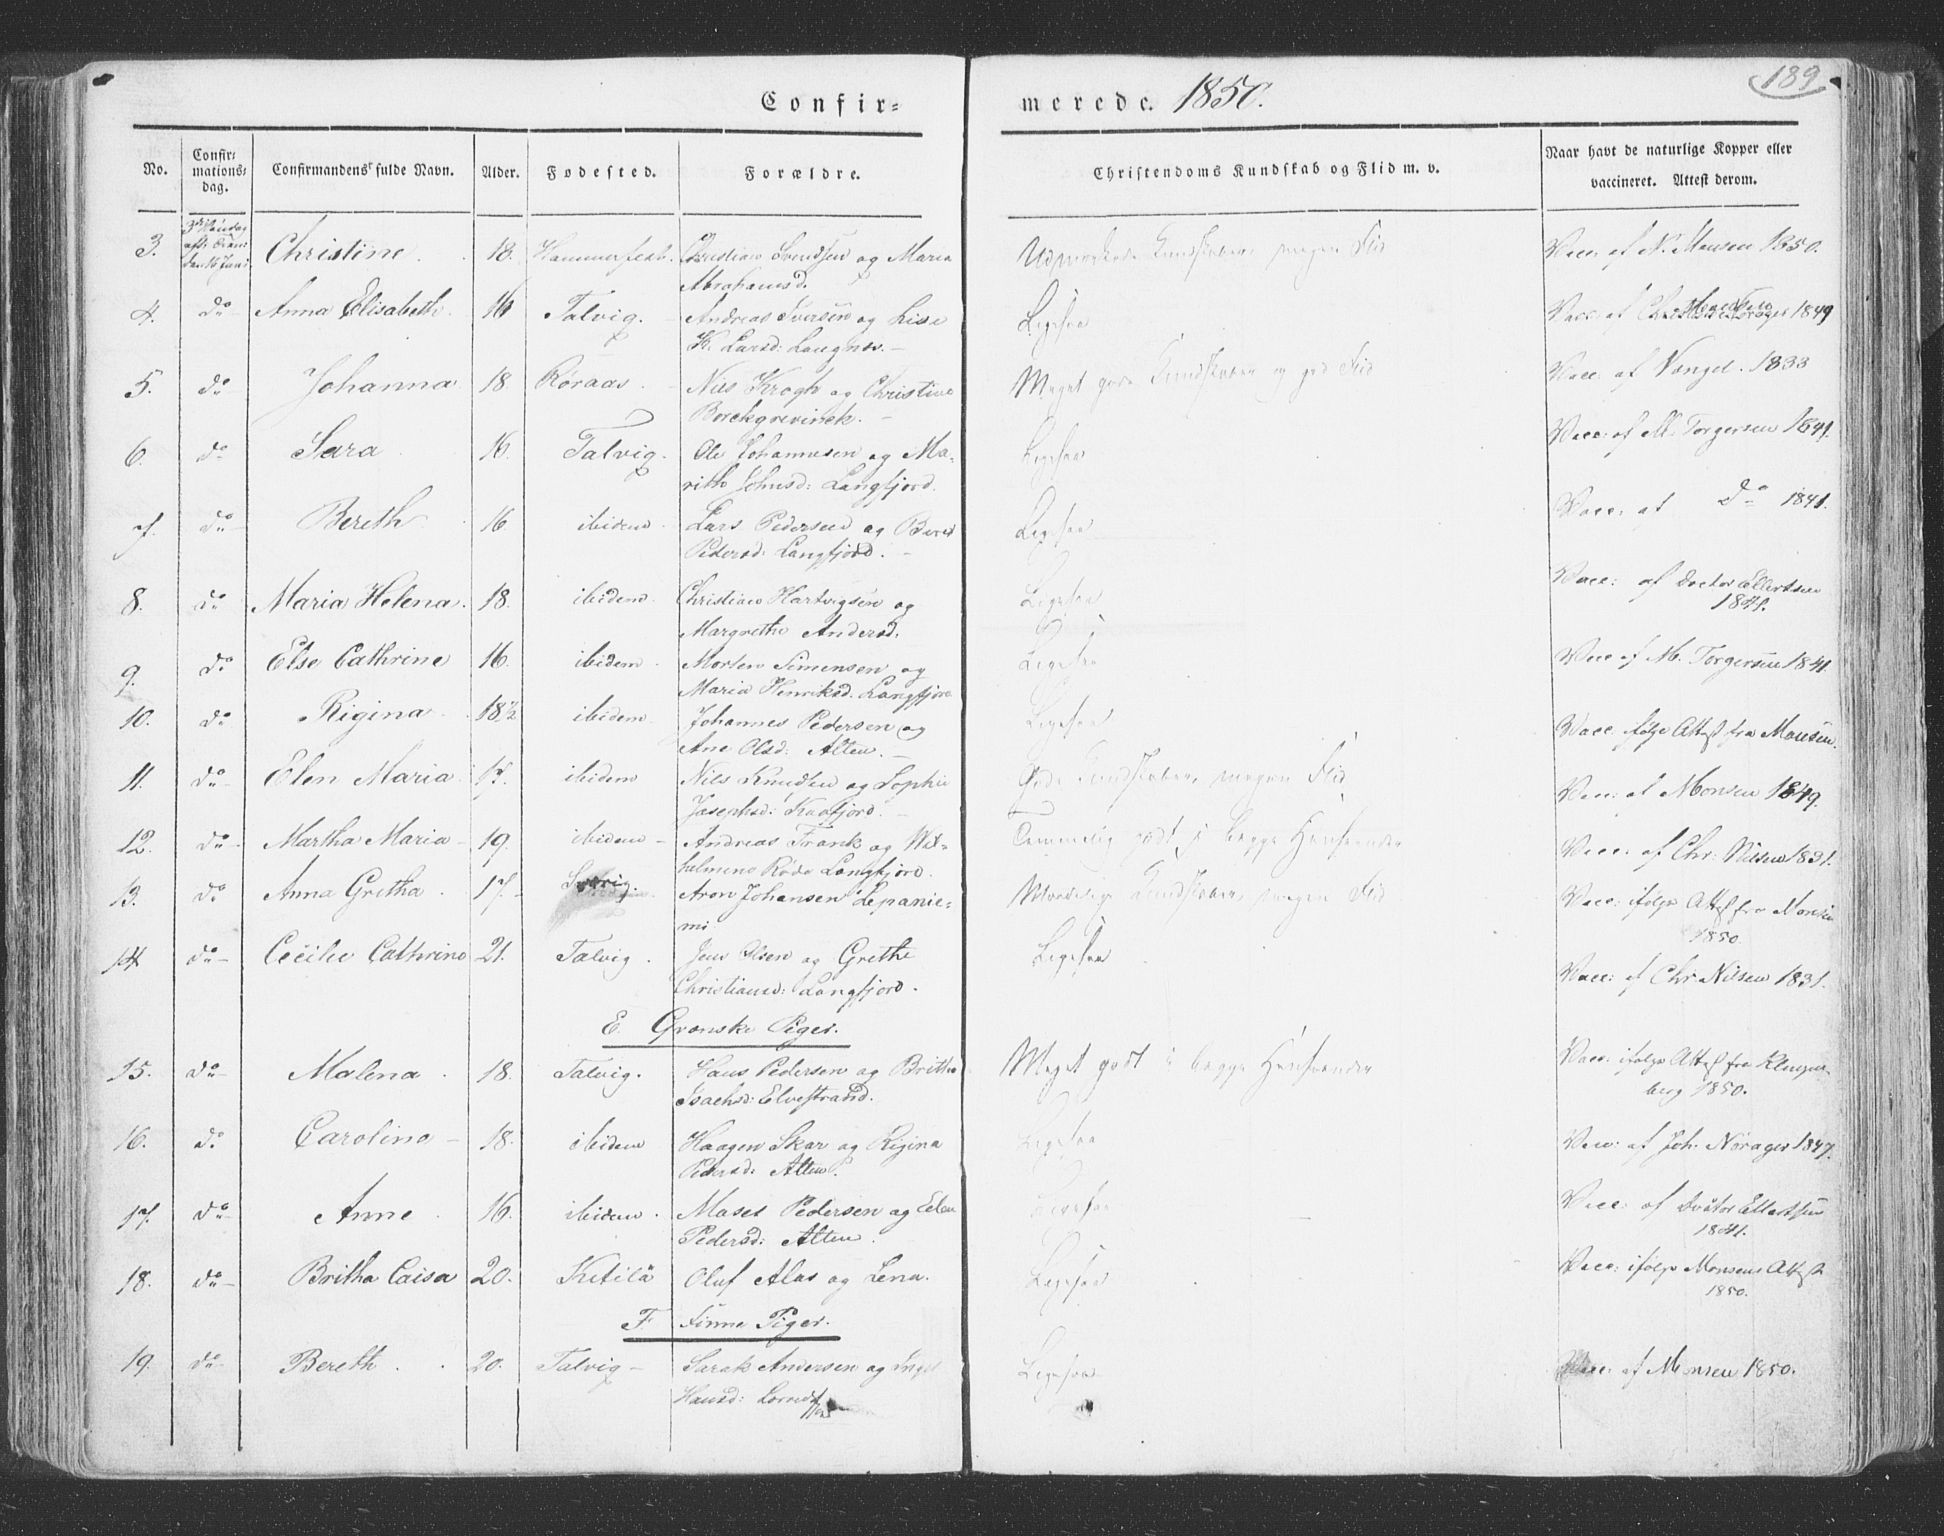 189
Confirmerede. 1850.
No. Confirmationsdag. Confirmandens fulde Navn. Alder. Fødested. Forældre. Christendoms Kundskab og Flid m. v. Naar havt de naturlige Kopper eller vaccineret. Attest derom.
3. Christine 18. Hammerfest Christian Svendsen og Maria Udmærkede Kundskaber, megen Flid Vacc. af N. Monsen 1850.
Abrahamsd.
4. do Anna Elisabeth 16 Talvig. Andreas Iversen og Lise Ligesaa Vacc: af 1849
K. Larsd:
5. do Johanna 18 Røraas Nils Krogh og Christine Meget gode Kundskaber og god Flid Vacc: af 1833
Borckgrevinck.
6. do Sara 16. Talvig. Ole Johannesen og Ma- Ligesaa Vacc: af M. Torgersen 1841.
rith Johnsd: Langfjord.
7. do Bereth 16 ibidem Lars Pedersen og Beret Ligesaa Vacc. af do 1841.
Pedersd: Langfjord.
8. do Maria Helena. 18. ibidem Christian Hartvigsen og Ligesaa Vacc: af Doctor Ellertsen
Margrethe Andersd. 1841.
9. do Else Cathrine 16. ibidem Morten Simensen og Ligesaa Vacc af M. Torgersen 1841
Maria Henriksd. Langfjord
10. do Regina 18½ ibidem Johannes Pedersen og Ligesaa Vacc ifølge Attest fra Monsen.
Ane Olsd: Alten.
11. do Elen Maria 17. ibidem Nils Knudsen og Sophie Gode Kundskaber, megen Flid Vacc: af Monsen 1849.
Josephsd: Kaafjord.
12. do Martha Maria 19. ibidem Andreas Frank og Wil- Temmelig godt i begge Henseender Vacc: af Chr: Nilsen 1831.
helmine Røde Langfjord.
13. do Anna Gretha 17. Sverig. Aron Johansen Lepanie- Kundskaber, megen Flid Vacc: ifølge Attest fra Monsen
mi 1850
14 do Cecilie Cathrine 21. Talvig. Jens Olsen og Grethe Ligesaa Vacc: af Chr Nilsen 1831.
Christiansd: Langfjord.
E. Qvænske Piger.
15. do Malena 18. Talvig. Hans Pedersen og Britha Meget godt i begge Henseender Vacc: ifølge Attest fra
Isachsd: Elvestrand. berg 1850.
16. do Carolina 18. ibidem Haagen Skar og Regina Ligesaa Vacc: af Joh. Norager 1847.
Pedersd: Alten.
17. do Anne 16. ibidem. Mases Pedersen og Elen Ligesaa Vacc: af Doctor Ellertsen
Pedersd: Alten. 1841.
18. do Britha Caisa 20. Kitilä Oluf Alas og Lena. Ligesaa Vacc: ifølge Monsens Attest
1850.
F. Finne Piger.
19. do Bereth 20. Talvig Sarak Andersen og Inget Ligesaa Vacc: af Monsen 1850.
Hansd: